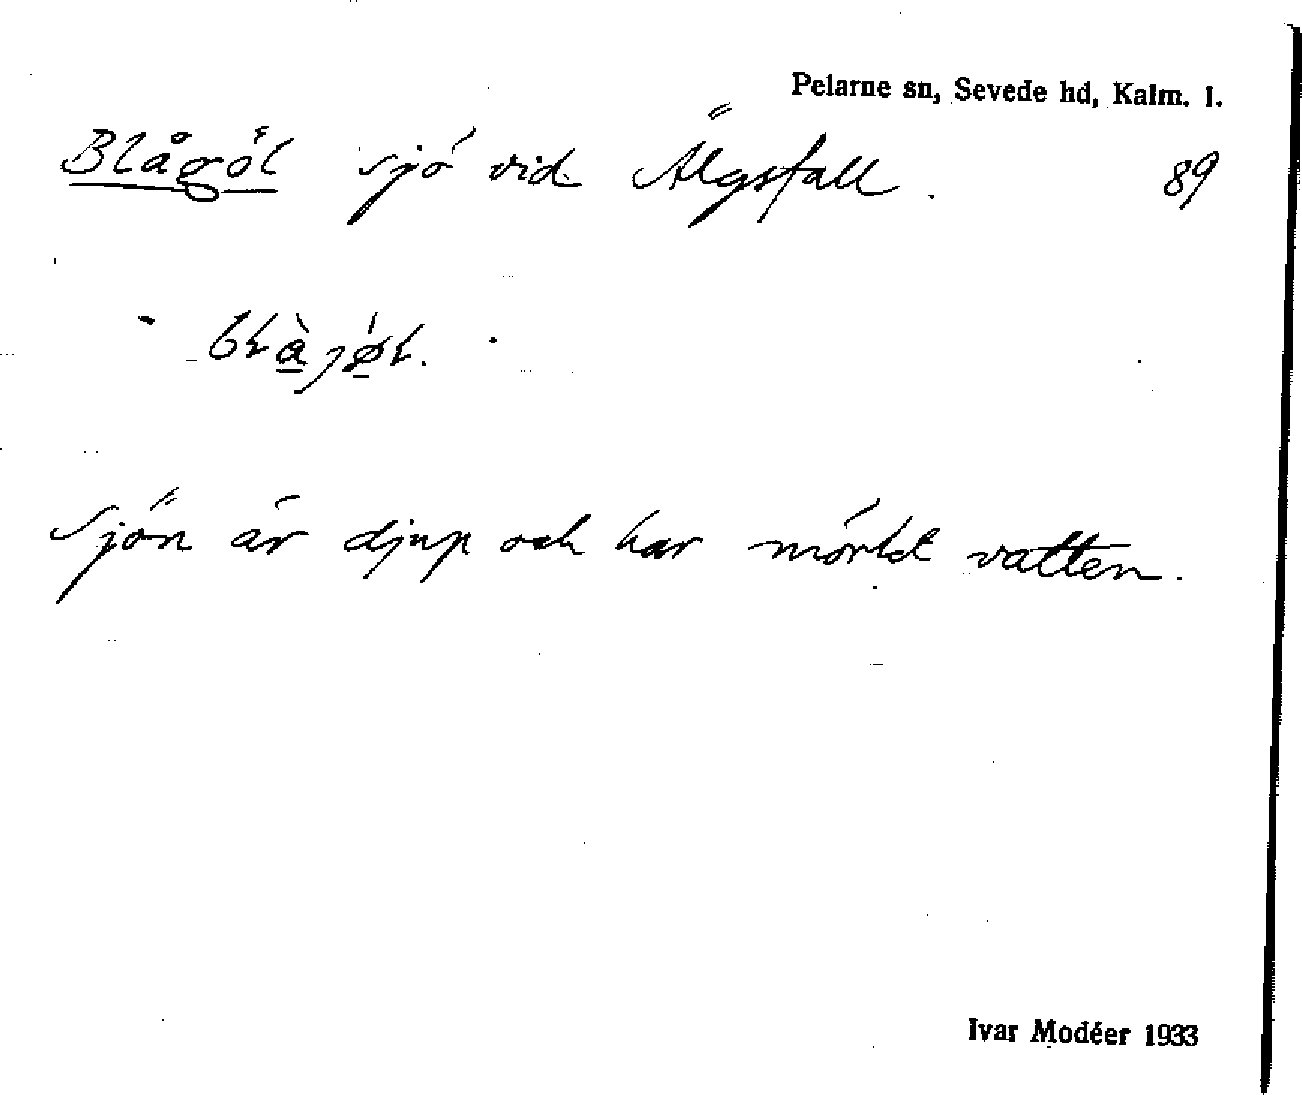 Pelarne sn, Sevede hd, Kalm. l.
Blågöl sjö vid Älgsfall. 89
blàjǿl.
Sjön är djup och har mörkt vatten.
Ivar Modéer 1933